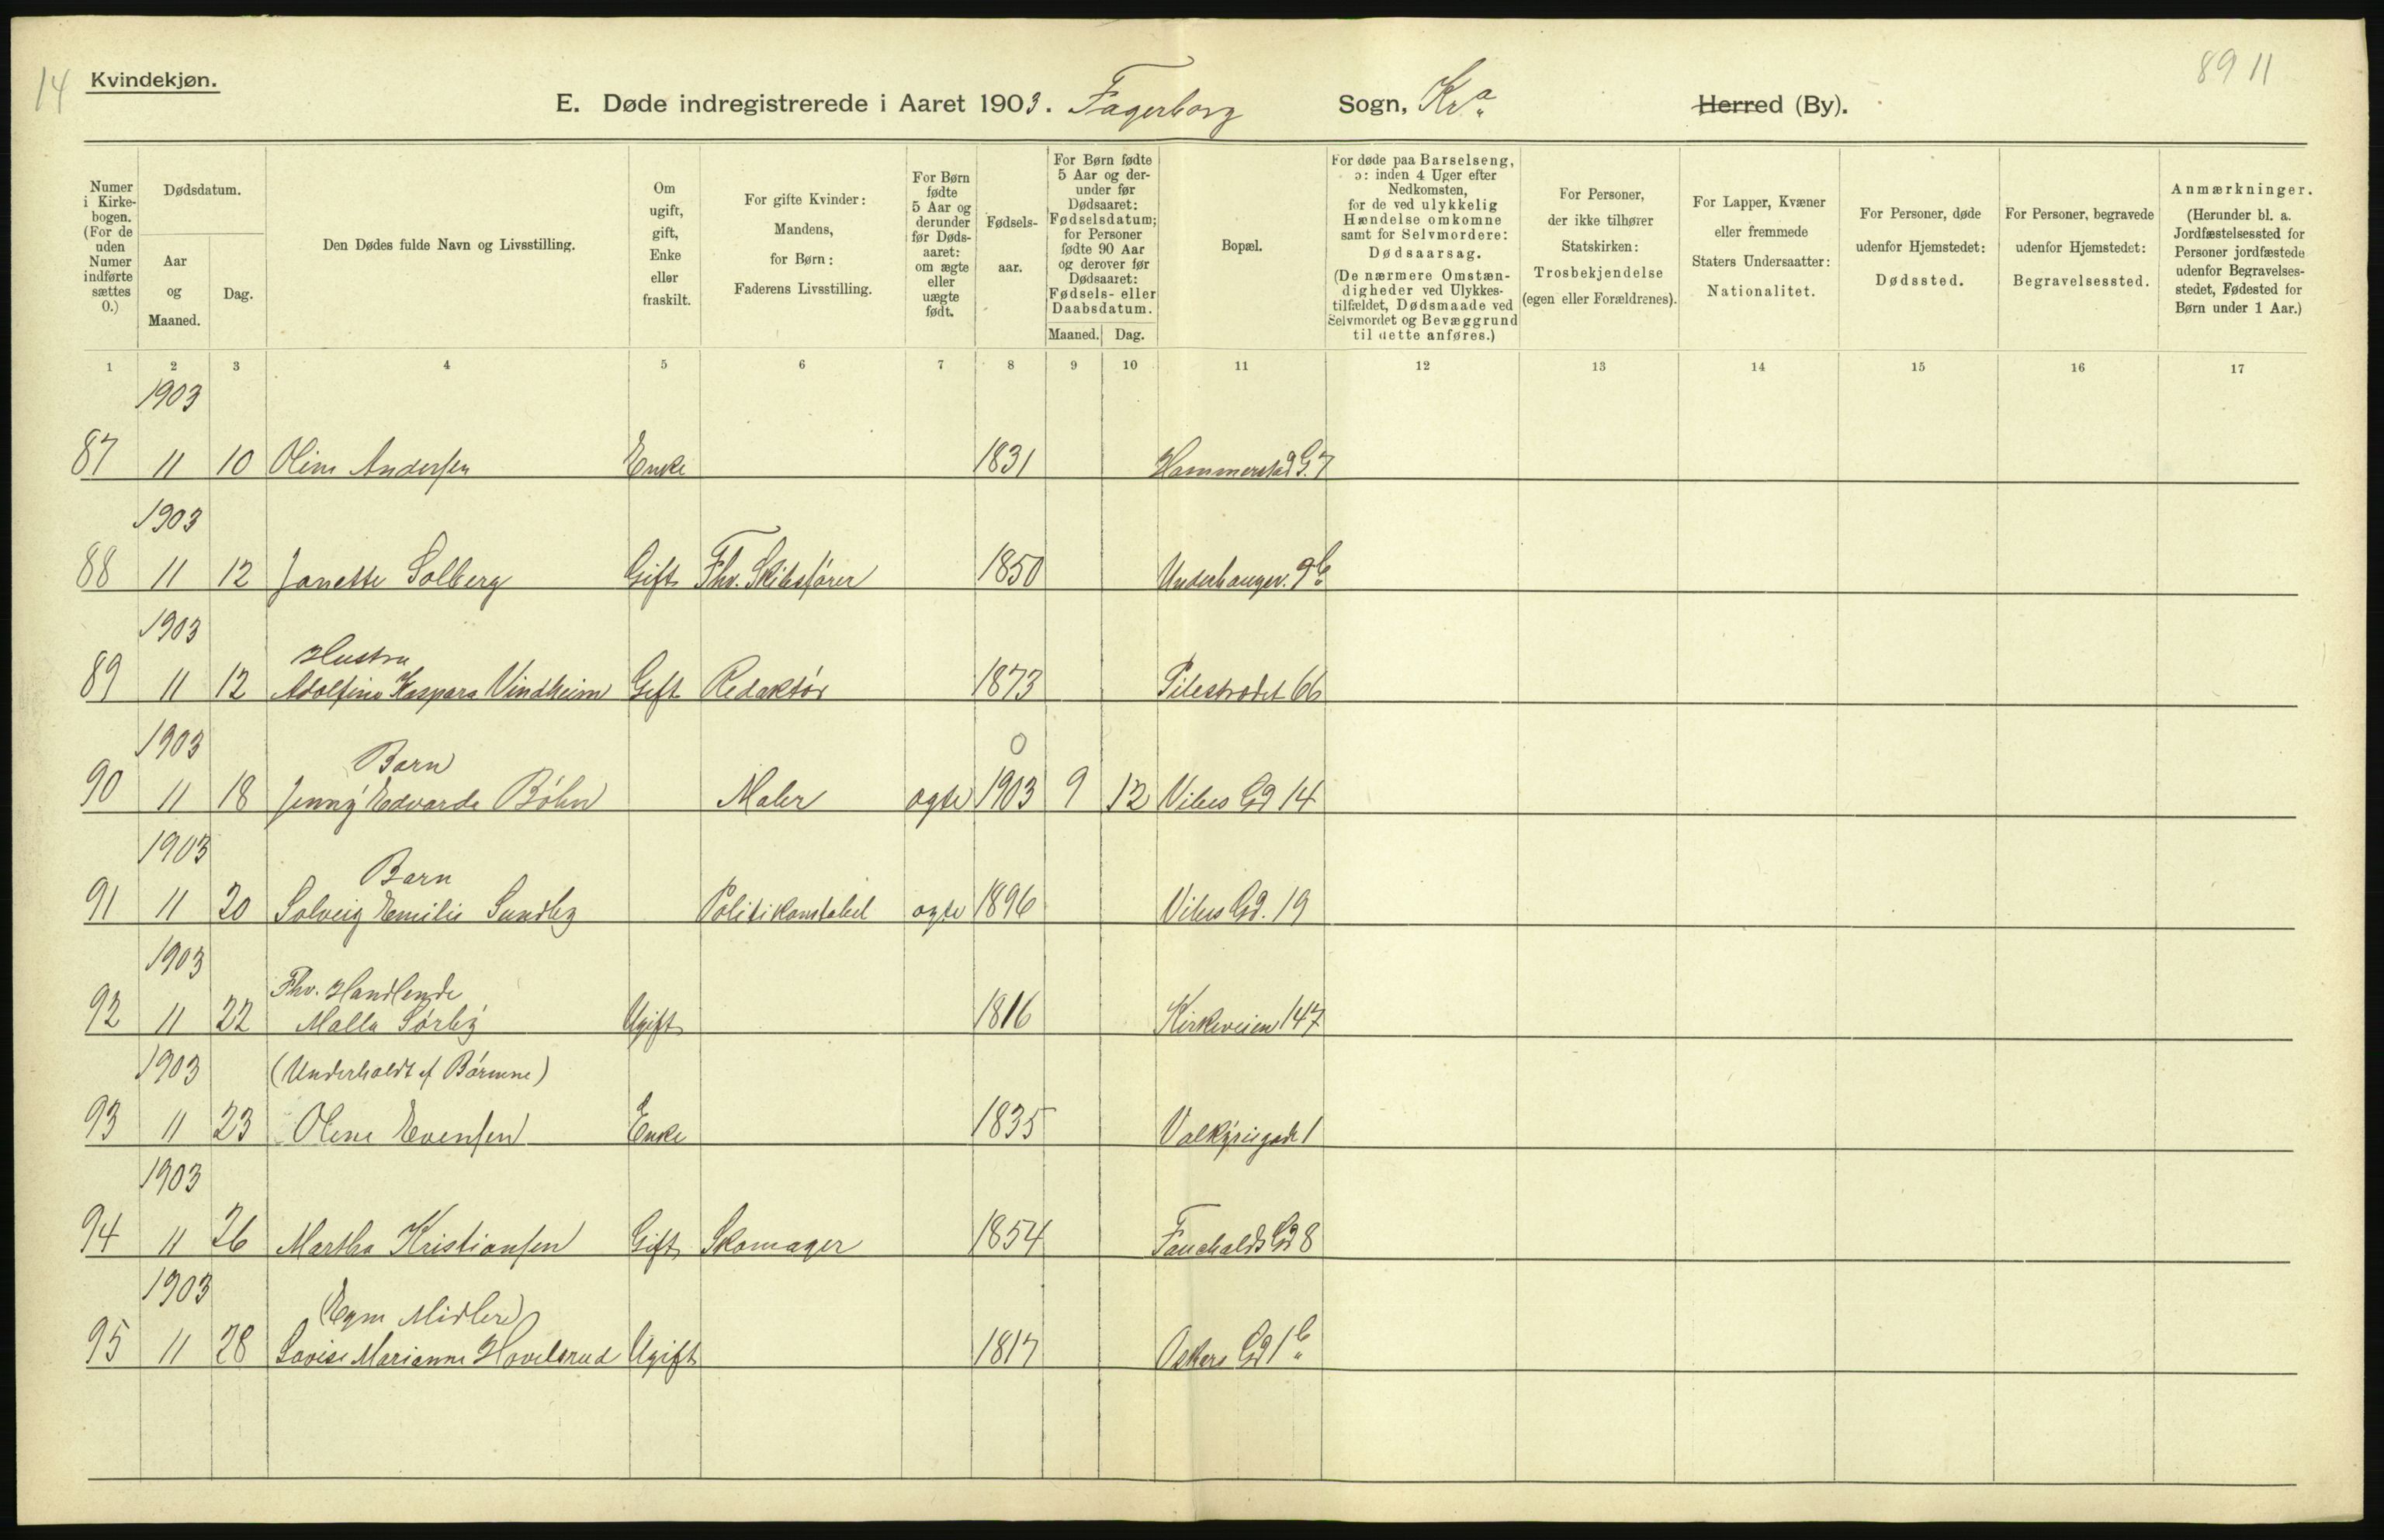 14
Kvindekjøn.
8911
E. Døde indregistrerede i Aaret 1903. Fagerborg Sogn, Kra Herred (By).
Numer i Kirkebogen. (For de uden Numer indførte sættes 0.)
Dødsdatum.
Aar og Maaned.
Dag.
Den Dødes fulde Navn og Livsstilling.
Om ugift, gift, Enke eller fraskilt.
For gifte Kvinder: Mandens, for Børn: Faderens Livsstilling.
For Børn fødte 5 Aar og derunder før Dødsaaret: om ægte eller uægte født.
Fødselsaar.
For Børn fødte 5 Aar og derunder før Dødsaaret: Fødselsdatum; for Personer fødte 90 Aar og derover før Dødsaaret: Fødsels- eller Daabsdatum.
Maaned. Dag.
Bopæl.
For døde paa Barselseng, ɔ: inden 4 Uger efter Nedkomsten, for de ved ulykkelig Hændelse omkomne samt for Selvmordere: Dødsaarsag. (De nærmere Omstændigheder ved Ulykkestilfældet, Dødsmaade ved Selvmordet og Bevæggrund til dette anføres.)
For Personer, der ikke tilhører Statskirken: Trosbekjendelse (egen eller Forældrenes).
For Lapper, Kvæner eller fremmede Staters Undersaatter: Nationalitet.
For Personer, døde udenfor Hjemstedet: Dødssted.
For Personer, begravede udenfor Hjemstedet: Begravelsessted.
Anmærkninger. (Herunder bl. a. Jordfæstelsessted for Personer jordfæstede udenfor Begravelsesstedet, Fødested for Børn under 1 Aar.)
1 2 3 4 5 6 7 8 9 10 11 12 13 14 15 16 17
1903
87 11 10 Oline Andersen Enke 1831 Hammerstad G. 7
1903
88 11 12 Janette Solberg Gift Fhv. Skibsfører 1850 Underhaugsv. 9b
1903
Hustru
89 11 12 Adolfine Kaspara Vindheim Gift Redaktør 1873 Pilestrædet 66
1903
Barn 0
90 11 18 Jenny Edvarda Bøhn Maler ægte 1903 9 12 Vibes Gd 14
1903
Barn
91 11 20 Solveig Emilie Sundby Politikonstabel ægte 1896 Vibes Gd. 19
1903
Fhv. Handlende
92 11 22 Malla Sørby Ugift 1816 Kirkeveien 147
1903 (Underholdt af Børnene)
93 11 23 Olene Evensen Enke 1835 Valkyriegade 1
1903
94 11 26 Martha Kristiansen Gift Skomager 1854 Fauchalds Gd 8
1903
(Egne Midler)
95 11 28 Lovise Marianne Hovelsrud Ugift 1817 Oskars Gd 1b